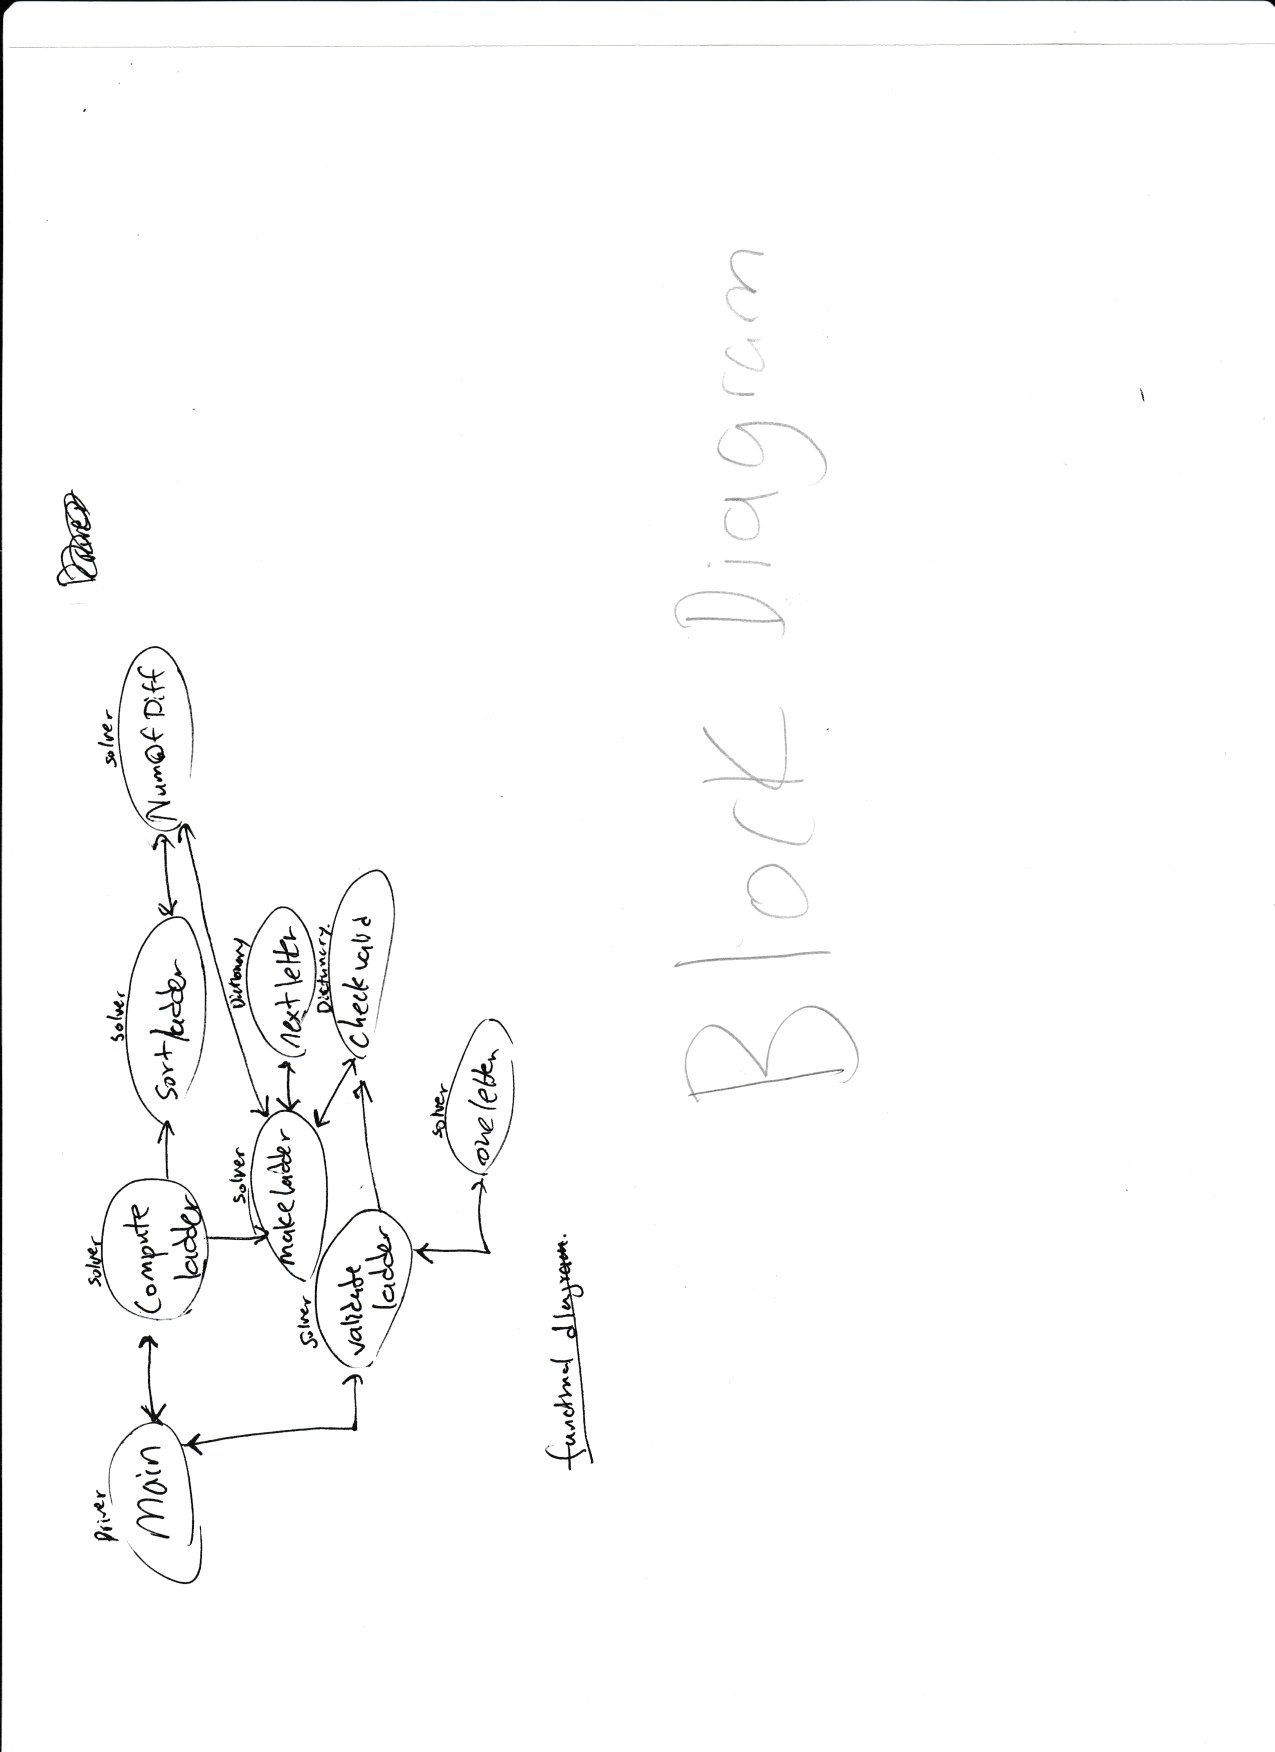 Driver
Main
Solver
Compute
ladder
Solver
Sort ladder
Solver
NumOfDiff
Solver
makeladder
Dictionary
nextletter
Dictunary.
checkvalid
Solver
validate
ladder
Solver
oneletter
functional diagram.
Block Diagram